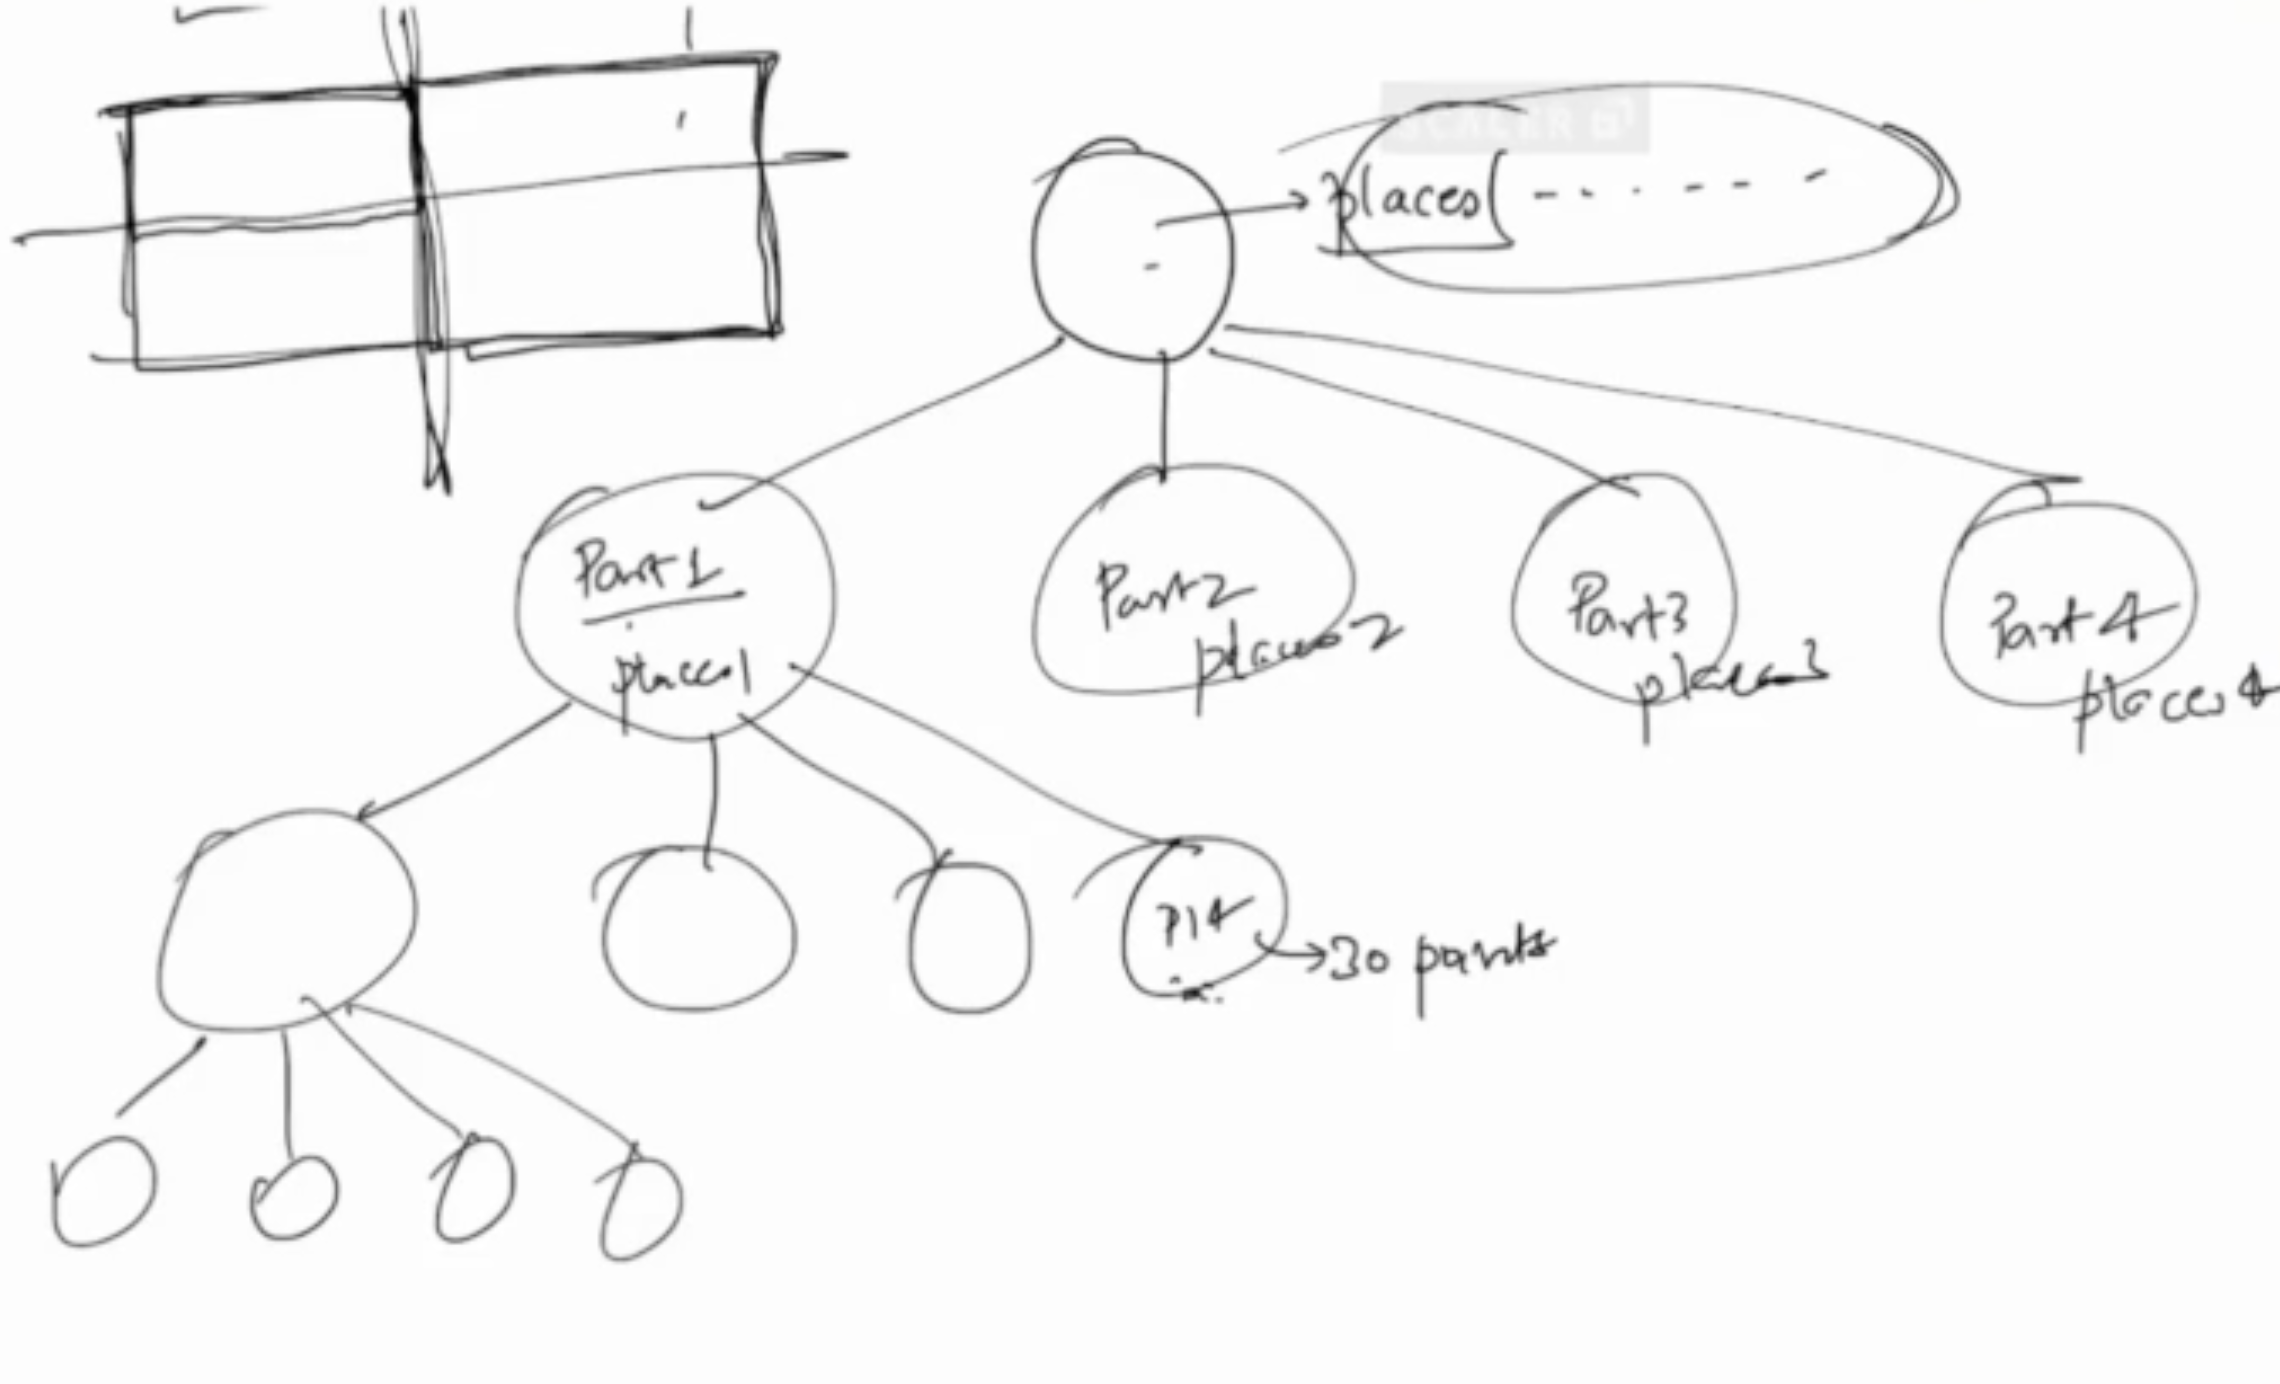 SCALER
places[ - - . - - -
Part1
places1
Part2
places2
Part3
places3
Part4
places4
P14
30 points